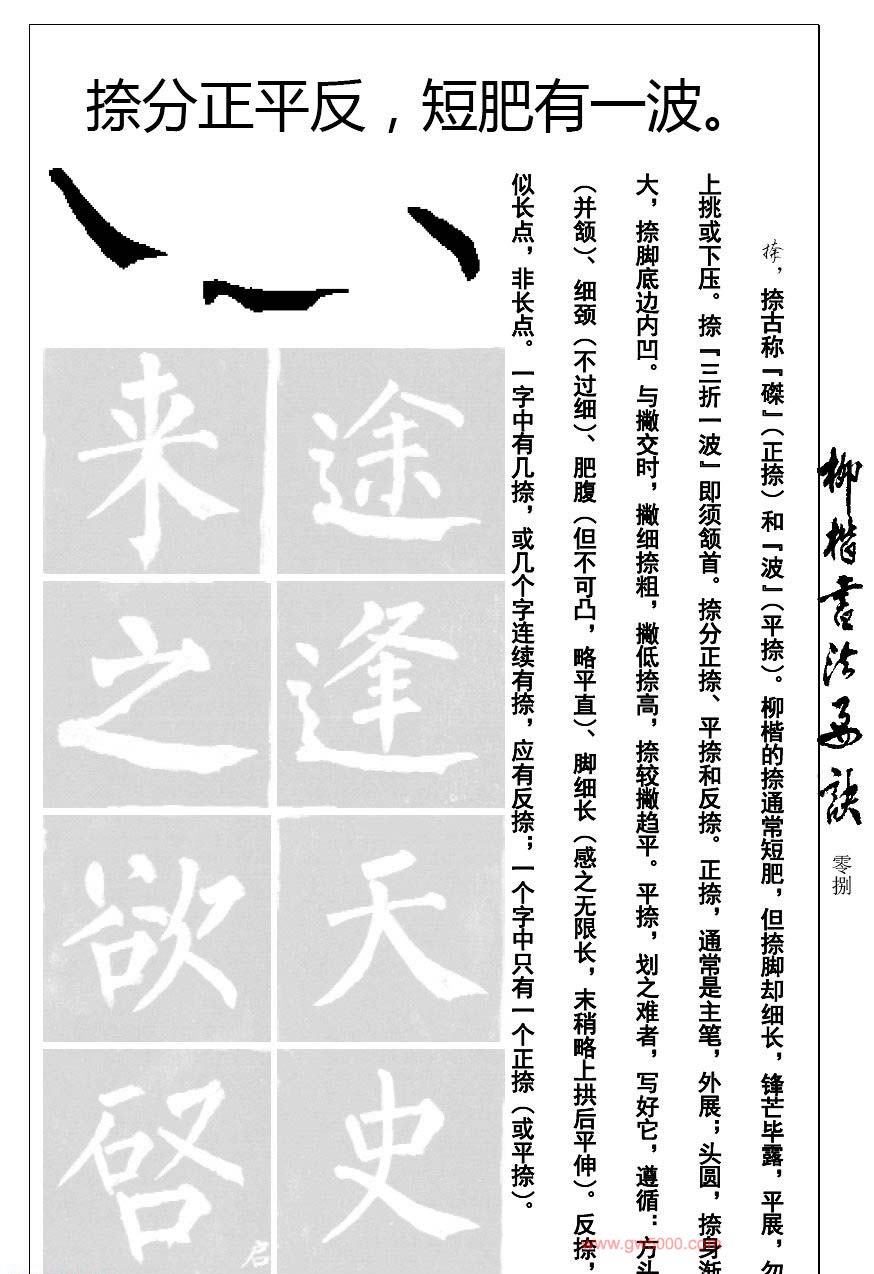 捺分正平反，短肥有一波。
捺，捺古称『磔』（正捺）和『波』（平捺）。柳楷的捺通常短肥，但捺脚却细长，锋芒毕露，平展，勿
上挑或下压。捺『三折一波』即须颔首。捺分正捺、平捺和反捺。正捺，通常是主笔，外展；头圆，捺身渐
大，捺脚底边内凹。与撇交时，撇细捺粗，撇低捺高，捺较撇趋平。平捺，划之难者，写好它，遵循：方头
（并颔）、细颈（不过细）、肥腹（但不可凸，略平直）、脚细长（感之无限长，末稍略上拱后平伸）。反捺，
似长点，非长点。一字中有几捺，或几个字连续有捺，应有反捺；一个字中只有一个正捺（或平捺）。
来途
之逢
欲天
啓史
启
柳楷书法要诀
零捌
www.gw5000.com